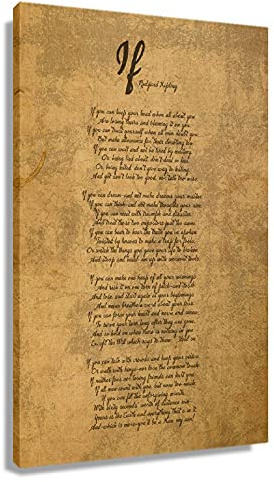 If
Rudyard Kipling
If you can keep your head when all about you
Are losing theirs and blaming it on you,
If you can trust yourself when all men doubt you,
But make allowance for their doubting too;
If you can wait and not be tired by waiting,
Or being lied about, don't deal in lies,
Or being hated, don't give way to hating,
And yet don't look too good, nor talk too wise:
If you can dream—and not make dreams your master;
If you can think—and not make thoughts your aim;
If you can meet with Triumph and Disaster
And treat those two impostors just the same;
If you can bear to hear the truth you've spoken
Twisted by knaves to make a trap for fools,
Or watch the things you gave your life to, broken,
And stoop and build 'em up with worn-out tools:
If you can make one heap of all your winnings
And risk it on one turn of pitch-and-toss,
And lose, and start again at your beginnings
And never breathe a word about your loss;
If you can force your heart and nerve and sinew
To serve your turn long after they are gone,
And so hold on when there is nothing in you
Except the Will which says to them: 'Hold on!'
If you can talk with crowds and keep your virtue,
Or walk with Kings—nor lose the common touch,
If neither foes nor loving friends can hurt you,
If all men count with you, but none too much;
If you can fill the unforgiving minute
With sixty seconds' worth of distance run,
Yours is the Earth and everything that's in it,
And—which is more—you'll be a Man, my son!